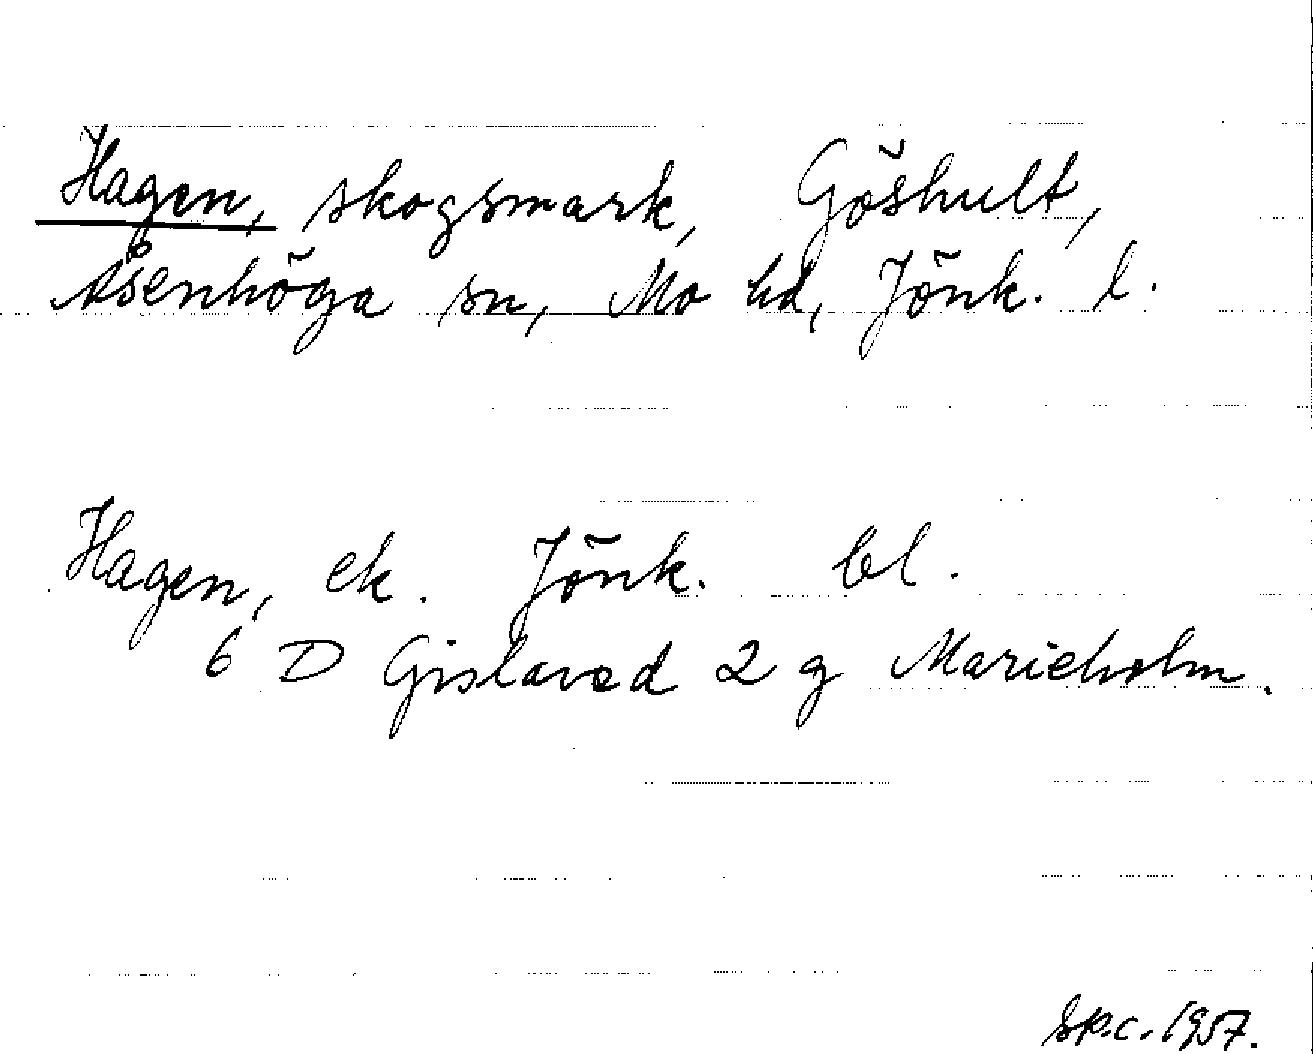 Hagen, skogsmark, Göshult,
Åsenhöga sn, Mo hd, Jönk. l.
Hagen, ek. Jönk. bl.
6 D Gislaved 2 g Marieholm.
Sp.c. 1957.